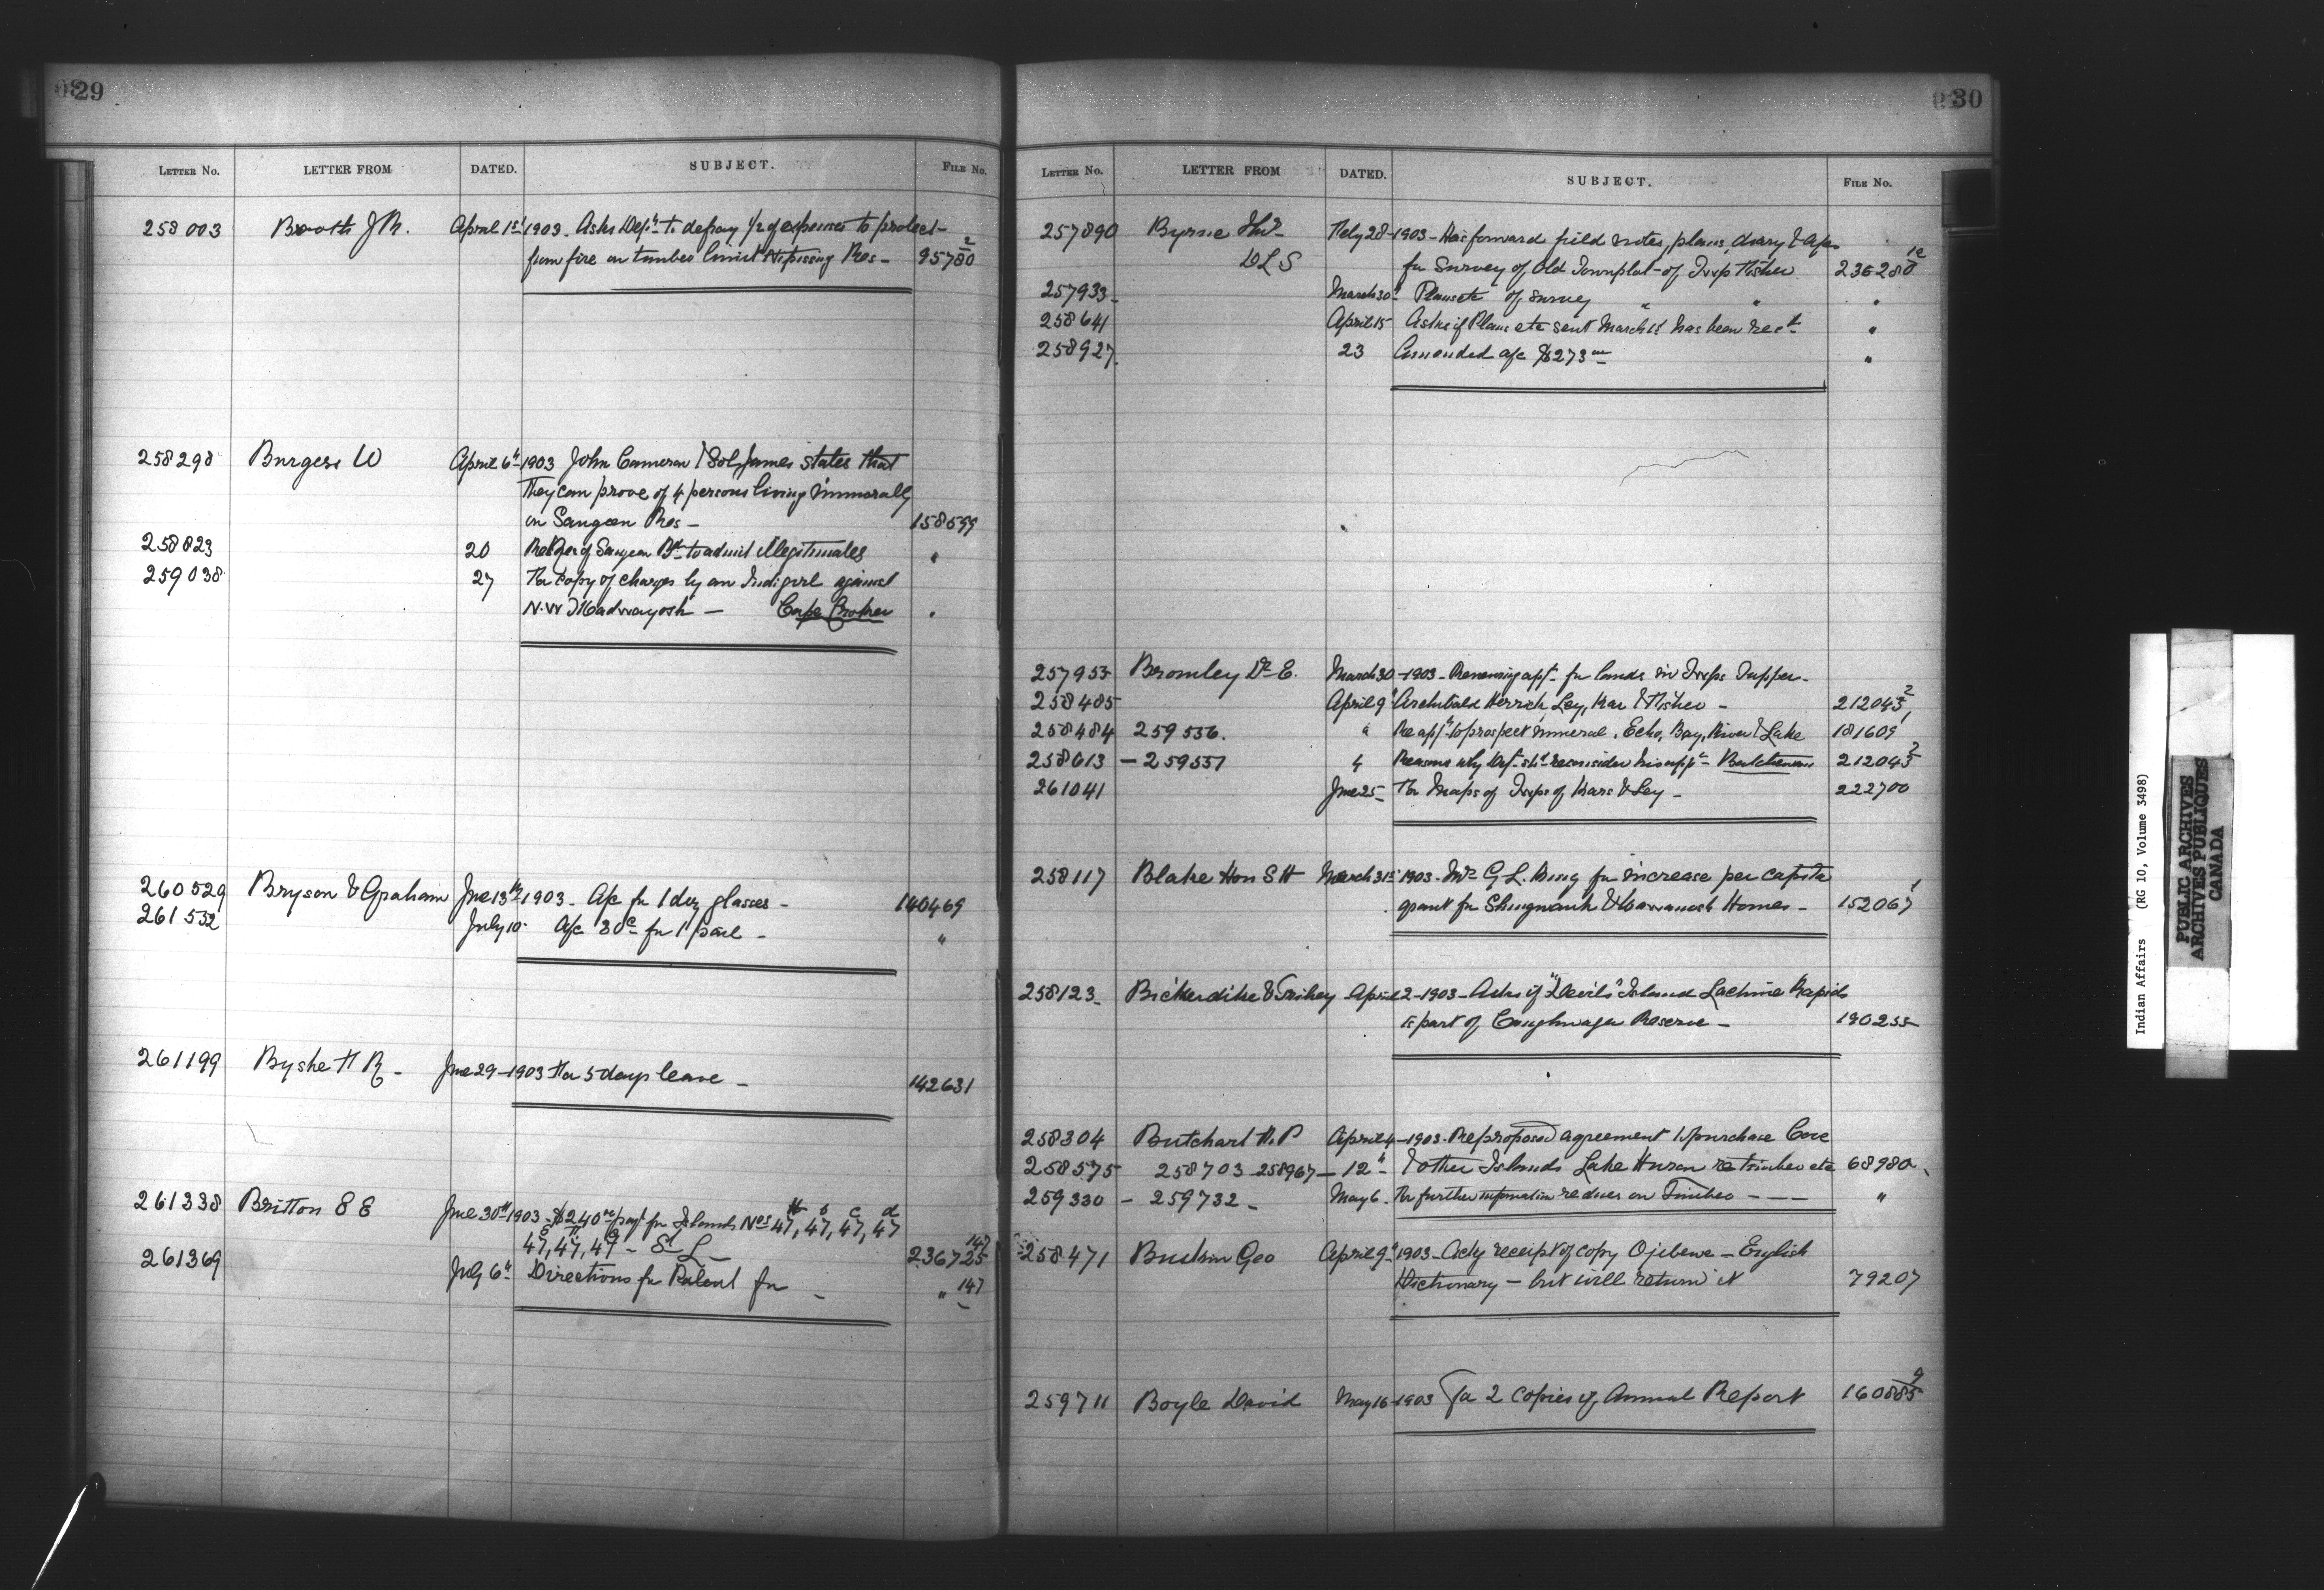 29
LETTER No. LETTER FROM DATED. SUBJECT. FILE No.
258003 Booth J R. April 1st 1903. Asks Dept. to defray 1/2 of expenses to protect
from fire on timber limit Nipissing Res - 95780 2
258298 Burgess W April 6th 1903 John Cameron & Sol James states that
They can prove of 4 persons living immorally
on Saugeen Res - 158599
258823 20 of Saugeen Bd to admit illegitimates "
259038 27 For copy of charges by an Indi girl against
N. W Madwayosh - Cape Croker "
260529 Bryson & Graham Jne 13th 1903. A/c for 1 doz glasses -
140469
261532 July 10 A/c 80c for 1 pail - "
261199 Byshe H R - Jne 29-1903 For 5 days leave - 142631
261338 Britton E E Jne 30th 1903 - $240 payt for Islands Nos 47, 47, 47, 47
47, 47, 47 - St L - 236725 147
261369 July 6th Directions for Patent for - " 147
30
LETTER No. LETTER FROM DATED. SUBJECT. FILE No.
257890 Byrne Feby 28-1903 - Has forward field notes, plans, diary & a/c
DLS for Survey of Old Townplot of Twp Fisher
257933 March 30th Plans etc of survey " " "
258641 April 15 Asks if Plans etc sent March 1st has been recd "
258927 23 Amended a/c $273 "
257953 Bromley E. March 30-1903 - Renewing appn for lands in Twps Tupper -
258485 April 9th Archibald Herrick, Ley, Kars & Fisher - 212043 2
258484 259556. " Re appn to prospect mineral, Echo, Bay, River & Lake 181609 1
258013 - 259557 4 Reasons why Dept shd reconsider his appn - 212043 2
261041 Jne 25 For Maps of Twps of Kars & Ley - 222700
258117 Blake Hon S H March 31st 1903. Mr G. L. King for increase per capita
grant for Shingwauk & Wawanosh Homes - 152067 1
258123 Bickerdike & April 2-1903 - Asks if "Devils" Island Lachine Rapids
is part of Caughnawaga Reserve - 190255
258304 Butchart H. P April 4-1903. Re proposed agreement to purchase Cove
258575 258703 258967 - 12th - & other Islands Lake Huron re timber etc 68980
259330 - 259732 - May 6. For further information re dues on Timber - "
258471 Geo April 9th 1903 - Ackg receipt of copy Ojebewe - English
Dictionary - but will return it 79207
259711 Boyle David May 16-1903 For 2 Copies of Annual Report 160885 9
Indian Affairs (RG 10, Volume 3498)
PUBLIC ARCHIVES
ARCHIVES PUBLIQUES
CANADA